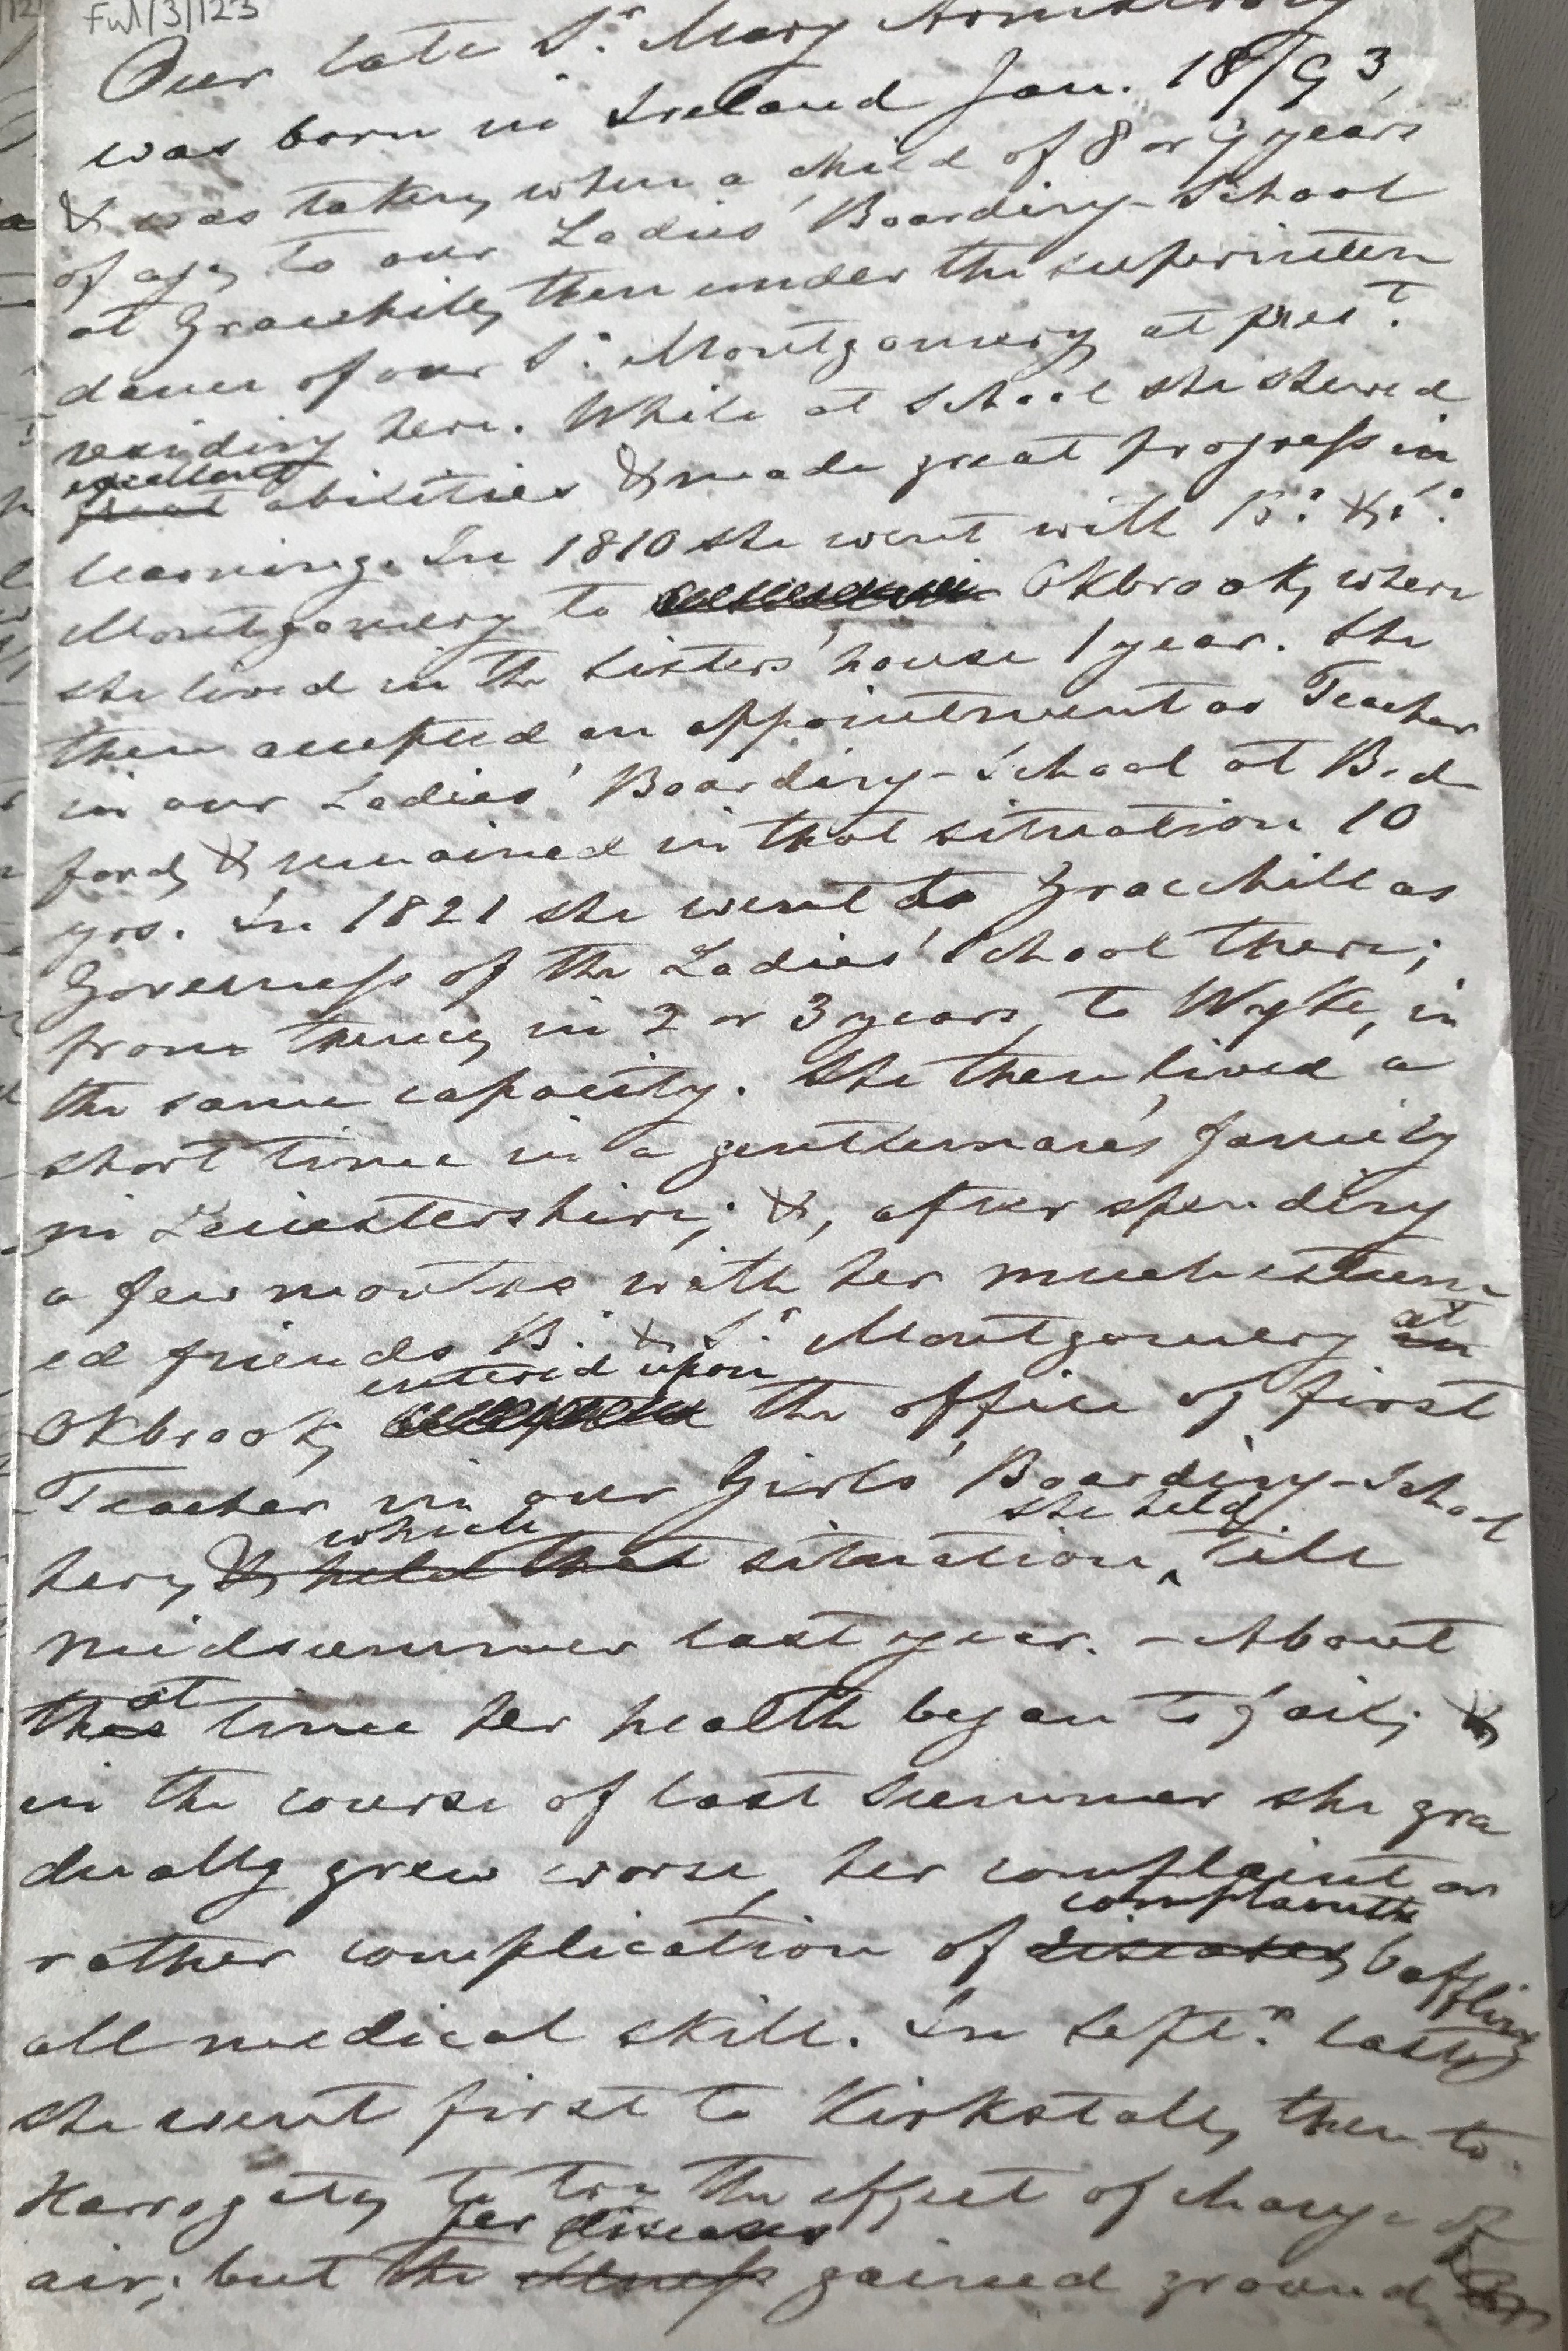 Ful/3/123
Our late Sr. Mary Armstrong
was born in Ireland Jan. 18/93,
& was taken, when a child of 8 or 9 years
of age, to our Ladies' Boarding-School
at Gracehill, then under the superinten
dence of our Sr. Montgomery, at prest.
residing here. While at School she shewed
excellent
great abilities & made great progress in
learning. In 1810 she went with Br. & Sr.
Montgomery to Okbrook, where
she lived in the Sisters' house 1 year. She
then accepted an appointment as Teacher
in our Ladies' Boarding-School at Bed
ford, & remained in that situation 10
yrs. In 1821 she went to Gracehill as
Governess of the Ladies' School there;
from thence, in 2 or 3 years, to Wyke, in
the same capacity. She then lived a
short time in a gentleman's family
in Leicestershire; &, after spending
a few months with her much esteem
ed friends Br. & Sr. Montgomery at
in
entered upon
Okbrook, the office of first
Teacher in our Girls' Boarding-School
which she held
here, & held that situation, till
midsummer last year. - About
at
this time her health began to fail; &
in the course of last Summer she gra
dually grew worse, her complaint or
complaints
rather complication of diseases, baffling
all medical skill. In Septr. last,
she went first to Kirkstall, then to
Harrogate, to try the effect of change of
her diseases
air; but the illness gained ground